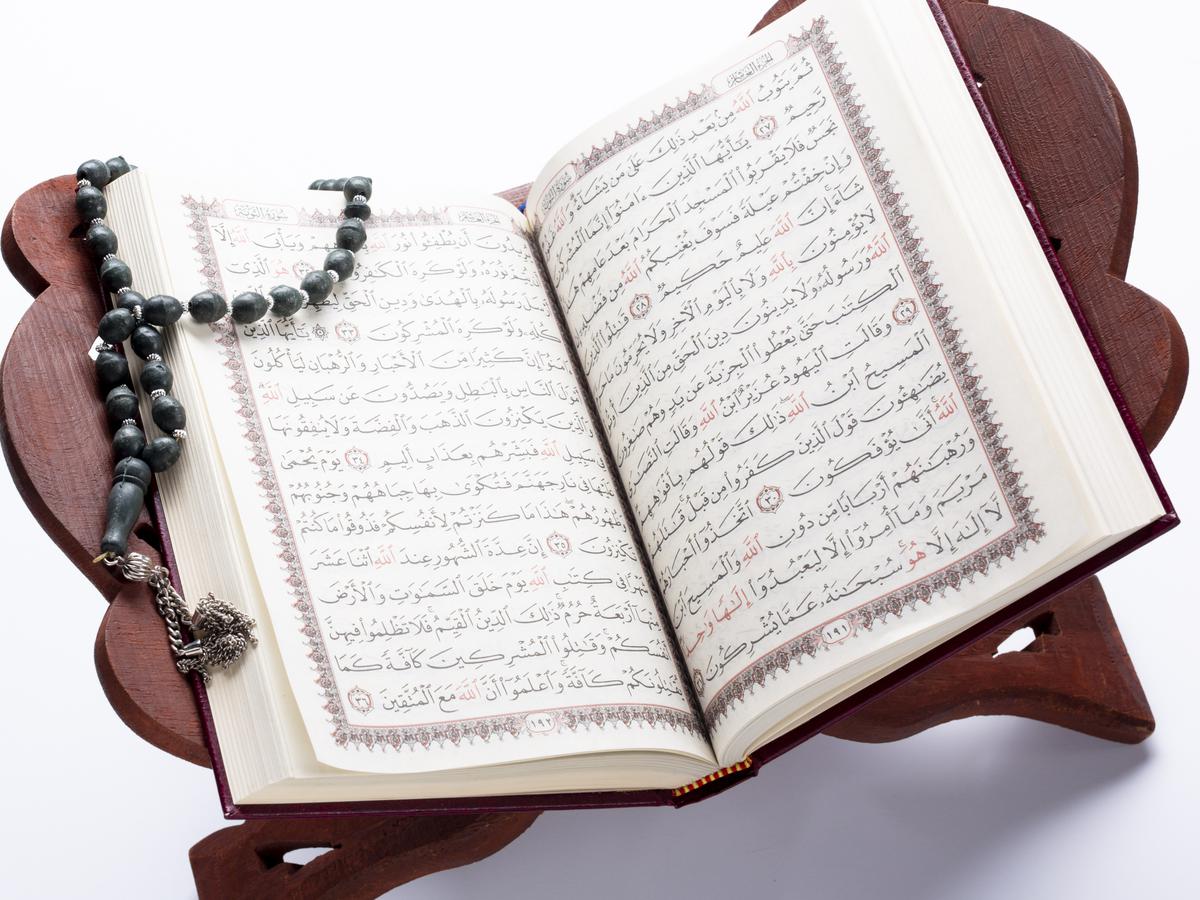 الجزء العاشر سورة التوبة
ثُمَّ يَتُوبُ ٱللَّهُ مِنۢ بَعْدِ ذَٰلِكَ عَلَىٰ مَن يَشَآءُ وَٱللَّهُ
رَّحِيمٌ ٢٧ يَٰٓأَيُّهَا ٱلَّذِينَ ءَامَنُوٓا۟ إِنَّمَا ٱلْمُشْرِكُونَ
نَجَسٌ فَلَا يَقْرَبُوا۟ ٱلْمَسْجِدَ ٱلْحَرَامَ بَعْدَ عَامِهِمْ
وَإِنْ خِفْتُمْ عَيْلَةً فَسَوْفَ يُغْنِيكُمُ ٱللَّهُ مِن فَضْلِهِۦٓ
شَآءَ إِنَّ ٱللَّهَ عَلِيمٌ حَكِيمٌ ٢٨ قَٰتِلُوا۟ ٱلَّذِينَ
لَا يُؤْمِنُونَ بِٱللَّهِ وَلَا بِٱلْيَوْمِ ٱلْءَاخِرِ وَلَا يُحَرِّمُونَ مَا
ٱللَّهُ وَرَسُولُهُۥ وَلَا يَدِينُونَ دِينَ ٱلْحَقِّ مِنَ ٱلَّذِينَ
ٱلْكِتَٰبَ حَتَّىٰ يُعْطُوا۟ ٱلْجِزْيَةَ عَن يَدٍ وَهُمْ صَٰغِرُونَ
٢٩ وَقَالَتِ ٱلْيَهُودُ عُزَيْرٌ ٱبْنُ ٱللَّهِ وَقَالَتِ ٱلنَّصَٰرَى
ٱلْمَسِيحُ ٱبْنُ ٱللَّهِ ذَٰلِكَ قَوْلُهُم بِأَفْوَٰهِهِمْ
يُضَٰهِـُٔونَ قَوْلَ ٱلَّذِينَ كَفَرُوا۟ مِن قَبْلُ قَٰتَلَهُمُ
ٱللَّهُ أَنَّىٰ يُؤْفَكُونَ ٣٠ ٱتَّخَذُوٓا۟ أَحْبَارَهُمْ
وَرُهْبَٰنَهُمْ أَرْبَابًا مِّن دُونِ ٱللَّهِ وَٱلْمَسِيحَ ٱبْنَ
مَرْيَمَ وَمَآ أُمِرُوٓا۟ إِلَّا لِيَعْبُدُوٓا۟ إِلَٰهًا وَٰحِدًا
لَّآ إِلَٰهَ إِلَّا هُوَ سُبْحَٰنَهُۥ عَمَّا يُشْرِكُونَ
١٩١
الجزء العاشر سورة التوبة
يُرِيدُونَ أَن يُطْفِـُٔوا۟ نُورَ ٱللَّهِ وَيَأْبَى ٱللَّهُ إِلَّآ
يُتِمَّ نُورَهُۥ وَلَوْ كَرِهَ ٱلْكَٰفِرُونَ هُوَ ٱلَّذِىٓ
رَسُولَهُۥ بِٱلْهُدَىٰ وَدِينِ ٱلْحَقِّ
كُلِّهِۦ وَلَوْ كَرِهَ ٱلْمُشْرِكُونَ ٣٣ يَٰٓأَيُّهَا ٱلَّذِينَ
إِنَّ كَثِيرًا مِّنَ ٱلْأَحْبَارِ وَٱلرُّهْبَانِ لَيَأْكُلُونَ
أَمْوَٰلَ ٱلنَّاسِ بِٱلْبَٰطِلِ وَيَصُدُّونَ عَن سَبِيلِ ٱللَّهِ
وَٱلَّذِينَ يَكْنِزُونَ ٱلذَّهَبَ وَٱلْفِضَّةَ وَلَا يُنفِقُونَهَا
سَبِيلِ ٱللَّهِ فَبَشِّرْهُم بِعَذَابٍ أَلِيمٍ ٣٤ يَوْمَ يُحْمَىٰ
عَلَيْهَا فِى نَارِ جَهَنَّمَ فَتُكْوَىٰ بِهَا جِبَاهُهُمْ وَجُنُوبُهُمْ
وَظُهُورُهُمْ هَٰذَا مَا كَنَزْتُمْ لِأَنفُسِكُمْ فَذُوقُوا۟ مَا كُنتُمْ
تَكْنِزُونَ ٣٥ إِنَّ عِدَّةَ ٱلشُّهُورِ عِندَ ٱللَّهِ ٱثْنَا عَشَرَ
شَهْرًا فِى كِتَٰبِ ٱللَّهِ يَوْمَ خَلَقَ ٱلسَّمَٰوَٰتِ وَٱلْأَرْضَ
مِنْهَآ أَرْبَعَةٌ حُرُمٌ ذَٰلِكَ ٱلدِّينُ ٱلْقَيِّمُ فَلَا تَظْلِمُوا۟ فِيهِنَّ
أَنفُسَكُمْ وَقَٰتِلُوا۟ ٱلْمُشْرِكِينَ كَآفَّةً كَمَا
يُقَٰتِلُونَكُمْ كَآفَّةً وَٱعْلَمُوٓا۟ أَنَّ ٱللَّهَ مَعَ ٱلْمُتَّقِينَ ٣٦
١٩٢